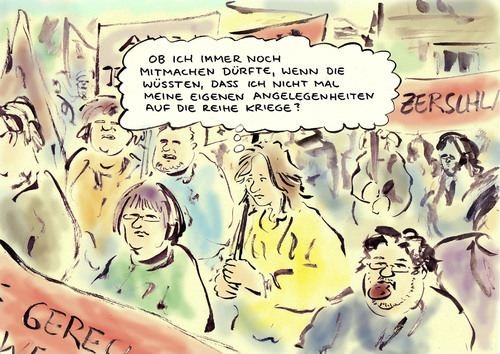 OB ICH IMMER NOCH
MITMACHEN DÜRFTE, WENN DIE
WÜSSTEN, DASS ICH NICHT MAL
MEINE EIGENEN ANGELEGENHEITEN
AUF DIE REIHE KRIEGE?
ZERSCHLA
GERECH